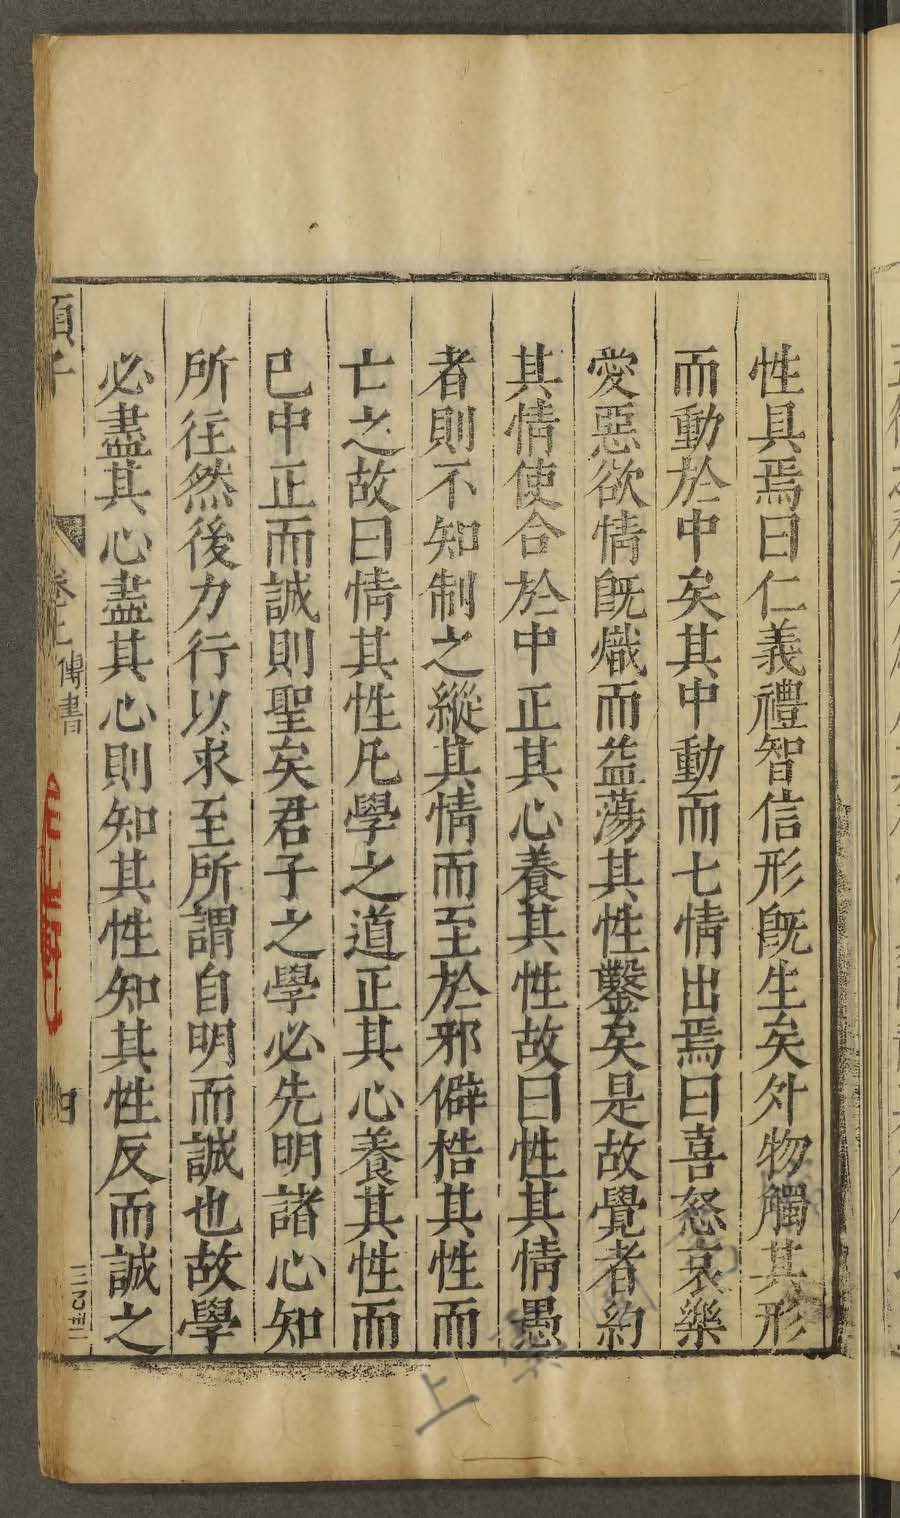 性具焉曰仁義禮智信形旣生矣外物觸其形
而動於中矣其中動而七情出焉曰喜怒哀樂
愛惡欲情旣熾而益蕩其性鑿矣是故覺者約
其情使合於中正其心養其性故曰性其情愚
者則不知制之縱其情而至於邪僻梏其性而
亡之故曰情其性凡學之道正其心養其性而
已中正而誠則聖矣君子之學必先明諸心知
所往然後力行以求至所謂自明而誠也故學
必盡其心盡其心則知其性知其性反而誠之
傳書